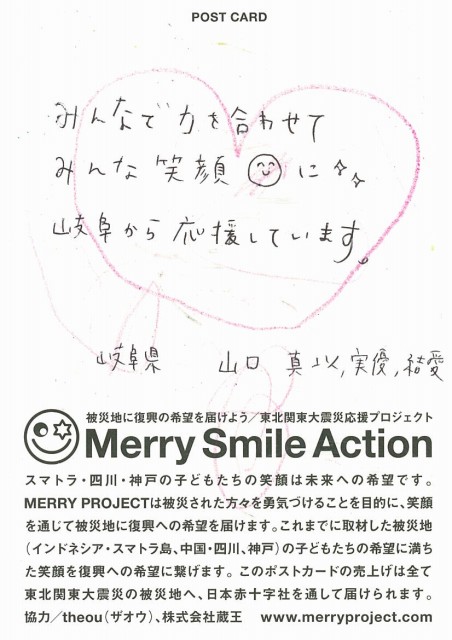 POST CARD
みんなで力を合わせて
みんな笑顔に
岐阜から応援しています。
岐阜県 山口 真以,実優,結愛
被災地に復興の希望を届けよう/東北関東大震災応援プロジェクト
Merry Smile Action
スマトラ・四川・神戸の子どもたちの笑顔は未来への希望です。
MERRY PROJECTは被災された方々を勇気づけることを目的に、笑顔
を通じて被災地に復興への希望を届けます。これまでに取材した被災地
(インドネシア・スマトラ島、中国・四川、神戸)の子どもたちの希望に満ち
た笑顔を復興への希望に繋げます。このポストカードの売上げは全て
東北関東大震災の被災地へ、日本赤十字社を通して届けられます。
協力/theou(ザオウ)、株式会社蔵王 www.merryproject.com